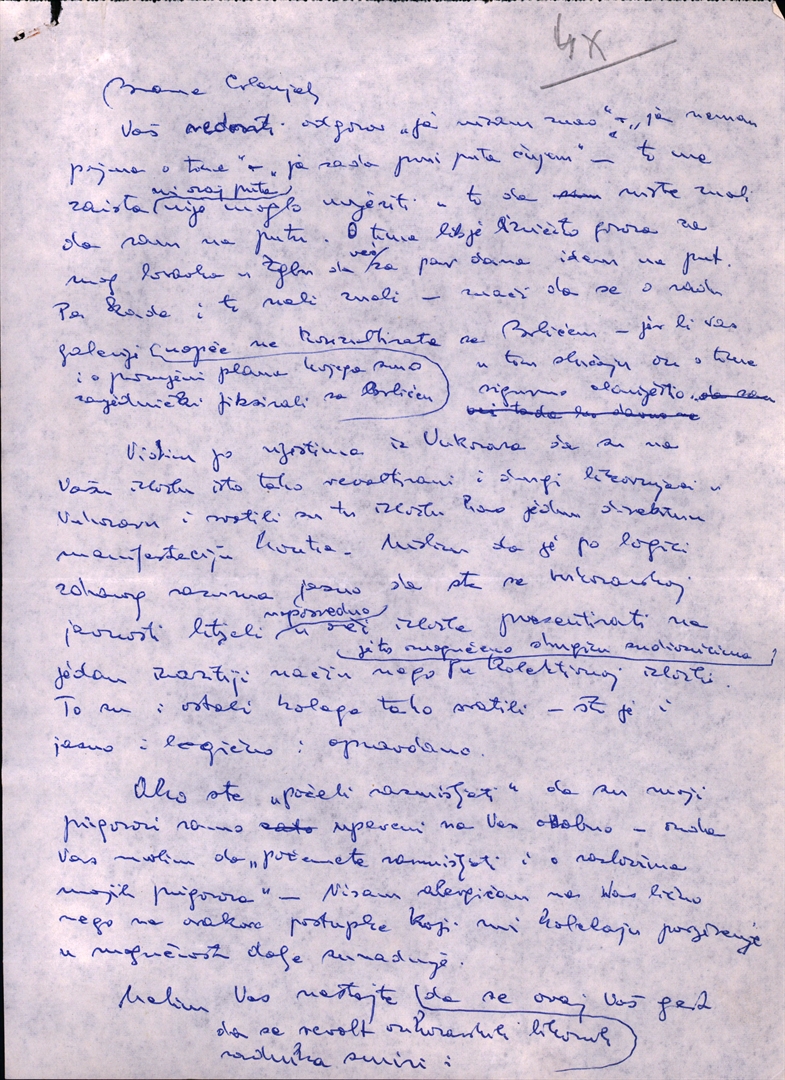 4x
Vaš odgovor „ja nisam znao“ + „ja nemam
pojma o tome“ + „ja sada prvi puta čujem“ — to me
ni ovaj puta
zaista nije moglo uvjeriti u to da niste znali
da sam na putu. O tome je bilo govora za
već
mog boravka u Zgbu da za par dana idem na put.
Pa kada i to niste znali — znači da se o radu
galerije uopće ne konzultirate sa Brlićem — jer bi vas
i o promjeni plana kojega smo u tom slučaju on o tome
zajednički fiksirali sa Brlićem sigurno obavijestio.
Vidim po vijestima iz Vukovara da su na
Vašu izložbu isto tako revoltirani i drugi likovnjaci u
Vukovaru i shvatili su tu izložbu kao jednu direktnu
manifestaciju kontra. Mislim da je po logici
zdravog razuma jasno da ste se vukovarskoj
neposredno
javnosti htjeli uoči izložbe prezentirati na
je to omogućeno drugim sudionicima
jedan izrazitiji način nego u kolektivnoj izložbi.
To su i ostali kolege tako shvatili — što je i
jasno i logično i opravdano.
Ako ste „počeli razmišljati“ da su moji
prigovori samo upereni na Vas osobno — onda
Vas molim da „počemete razmišljati i o razlozima
mojih prigovora“ — Nisam alergičan na Vas lično
nego na ovakove postupke koji mi kolebaju povjerenje
u mogućnost dalje suradnje.
Molim Vas nastojte da se ovaj Vaš gest
da se revolt vukovarskih likovnih
radnika smiri i